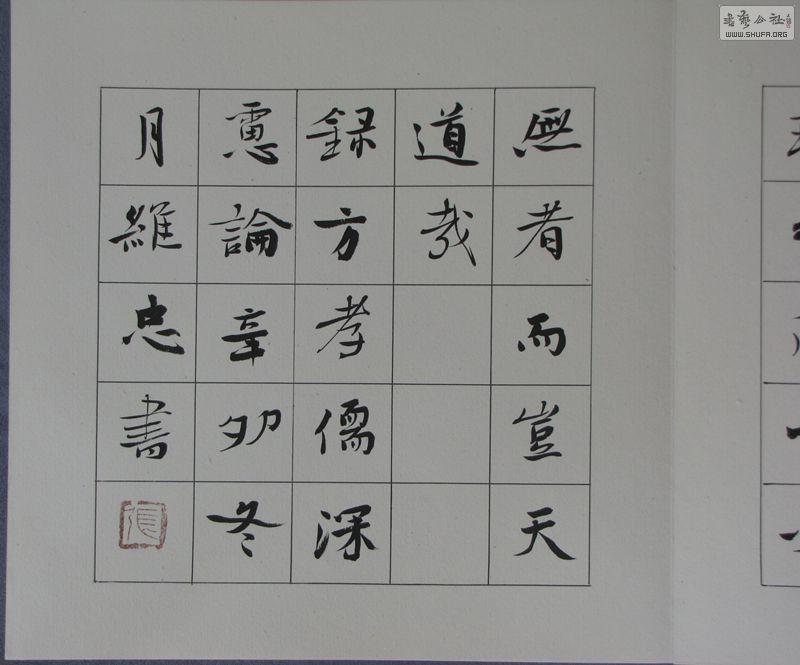 無者而豈天
道哉
録方孝儒深
慮論辛卯冬
月維忠書
張
書藝公社
WWW.SHUFA.ORG